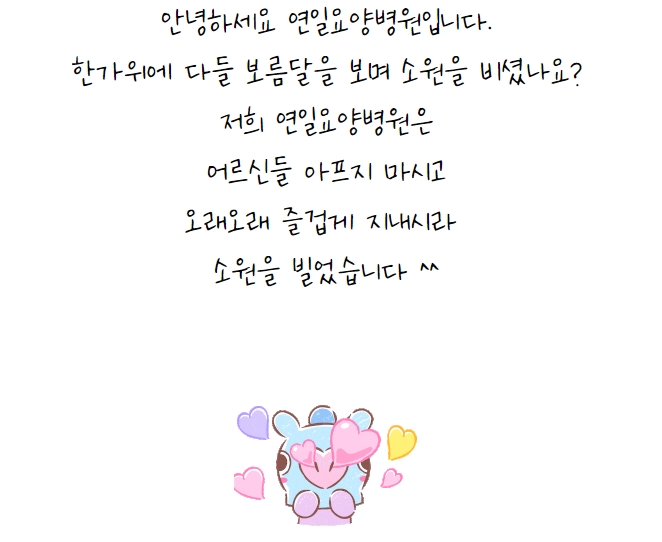 안녕하세요 연일요양병원입니다.
한가위에 다들 보름달을 보며 소원을 비셨나요?
저희 연일요양병원은
어르신들 아프지 마시고
오래오래 즐겁게 지내시라
소원을 빌었습니다 ^^